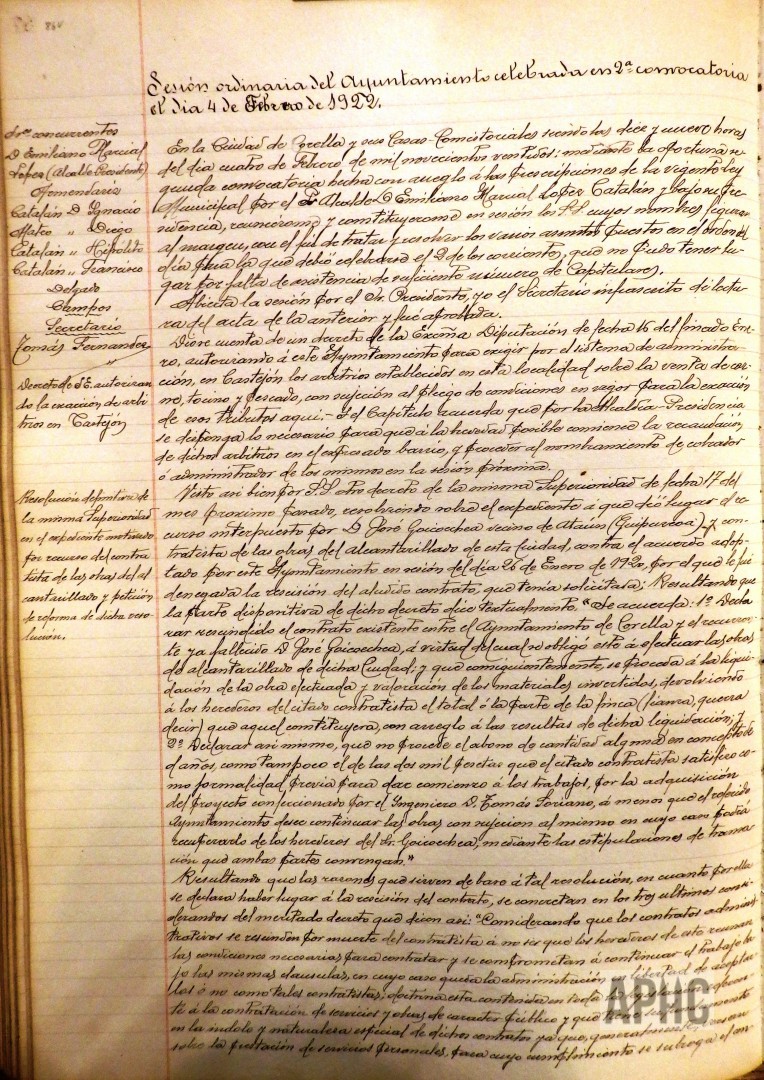 Sesión ordinaria del Ayuntamiento celebrada en 2ª convocatoria
el dia 4 de Febrero de 1922.
Sres concurrentes
D Emiliano Marcial
Lopez (Alcalde Presidente)
Catalán D Ignacio
Mateo " Diego
Catalán " Hipólito
Catalán " Francisco
Delgado
Campos
Secretario
Tomás Fernandez
"
Decreto de S.E. autorizan
do la exacción de arbi
trios en Castejón
Resolución definitiva de
la misma Superioridad
en el expediente motivado
por recurso del contra
tista de las obras del al
cantarillado y petición
de reforma de dicha reso
lución.
En la Ciudad de Corella y sus Casas-Consistoriales siendo las diez y nueve horas
del dia cuatro de Febrero de mil novecientos veintidos: mediante la oportuna se
gunda convocatoria hecha con arreglo á las prescripciones de la vigente Ley
Municipal por el Sr Alcalde D Emiliano Marcial Lopez Catalán y bajo su Pre
sidencia, reunieronse y constituyeronse en sesión los S.S. cuyos nombres figuran
al margen, con el fin de tratar y resolver los varios asuntos puestos en el orden del
dia para la que debió celebrarse el 2 de los corrientes, que no pudo tener lu
gar por falta de asistencia de suficiente número de Capitulares.
Abierta la sesión por el Sr. Presidente, yo el Secretario infrascrito di lectu
ra del acta de la anterior y fué aprobada.
Diose cuenta de un decreto de la Excma Diputación de fecha 16 del finado Ene
ro, autorizando á este Ayuntamiento para exigir por el sistema de administra
ción, en Castejón los arbitrios establecidos en esta localidad sobre la venta de car
ne, tocino y pescado, con sujeción al pliego de condiciones en vigor para la exacción
de esos tributos aqui.- Y el Capitulo acuerda que por la Alcaldia-Presidencia
se disponga lo necesario para que á la brevedad posible comience la recaudacion
de dichos arbitrios en el expresado barrio, y proceder al nombramiento de cobrador
ó administrador de los mismos en la sesión próxima.
Visto asi bien por S.S. otro decreto de la misma Superioridad de fecha 17 del
mes proximo pasado, resolviendo sobre el expediente á que dió lugar el re
curso interpuesto por D José Goicoechea vecino de Ataun (Guipuzcoa) y con
tratista de las obras del alcantarillado de esta Ciudad, contra el acuerdo adop
tado por este Ayuntamiento en sesión del dia 26 de Enero de 1920, por el que le fué
denegada la rescisión del aludido contrato, que tenía solicitada; Resultando que
la parte dispositiva de dicho decreto dice textualmente "Se acuerda: 1º Decla
rar rescindido el contrato existente entre el Ayuntamiento de Corella y el recurren
te ya fallecido D José Goicoechea, á virtud del cual se obligó este á efectuar las obras
de alcantarillado de dicha Ciudad; y que consiguientemente, se proceda á la liqui
dación de la obra efectuada y valoración de los materiales invertidos, devolviendo
á los herederos del citado contratista el total ó la parte de la finca (fianza, querra
decir) que aquel constituyera, con arreglo á las resultas de dicha liquidación, y
2º Declarar asi mismo, que no procede el abono de cantidad alguna en concepto de
daños, como tampoco el de las dos mil pesetas que el citado contratista satisfizo co
mo formalidad previa para dar comienzo á los trabajos, por la adquisición
del proyecto confeccionado por el Ingeniero D. Tomás Soriano, á menos que el referido
Ayuntamiento desee continuar las obras con sujecion al mismo en cuyo caso podrá
recuperarlo de los herederos del Sr. Goicoechea, mediante las estipulaciones de transa
ción que ambas partes convengan."
Resultando que las razones que sirven de base á tal resolución, en cuanto por ella
se declara haber lugar á la rescisión del contrato, se concretan en los tres ultimos consi
derandos del meritado decreto que dicen asi: "Considerando que los contratos adminis
trativos se rescinden por muerte del contratista á no ser que los herederos de este reunan
las condiciones necesarias para contratar y se comprometan á continuar el trabajo ba
jo las mismas clausulas, en cuyo caso queda la administración en libertad de aceptar
los ó no como tales contratistas, doctrina esta contenida en
te á la contratación de servicios y obras de caracter público y que
en la indole y naturaleza especial de dichos contratos ya que, generalmente, versan
sobre la prestación de servicios personales, para cuyo cumplimiento se subroga el con
APHC